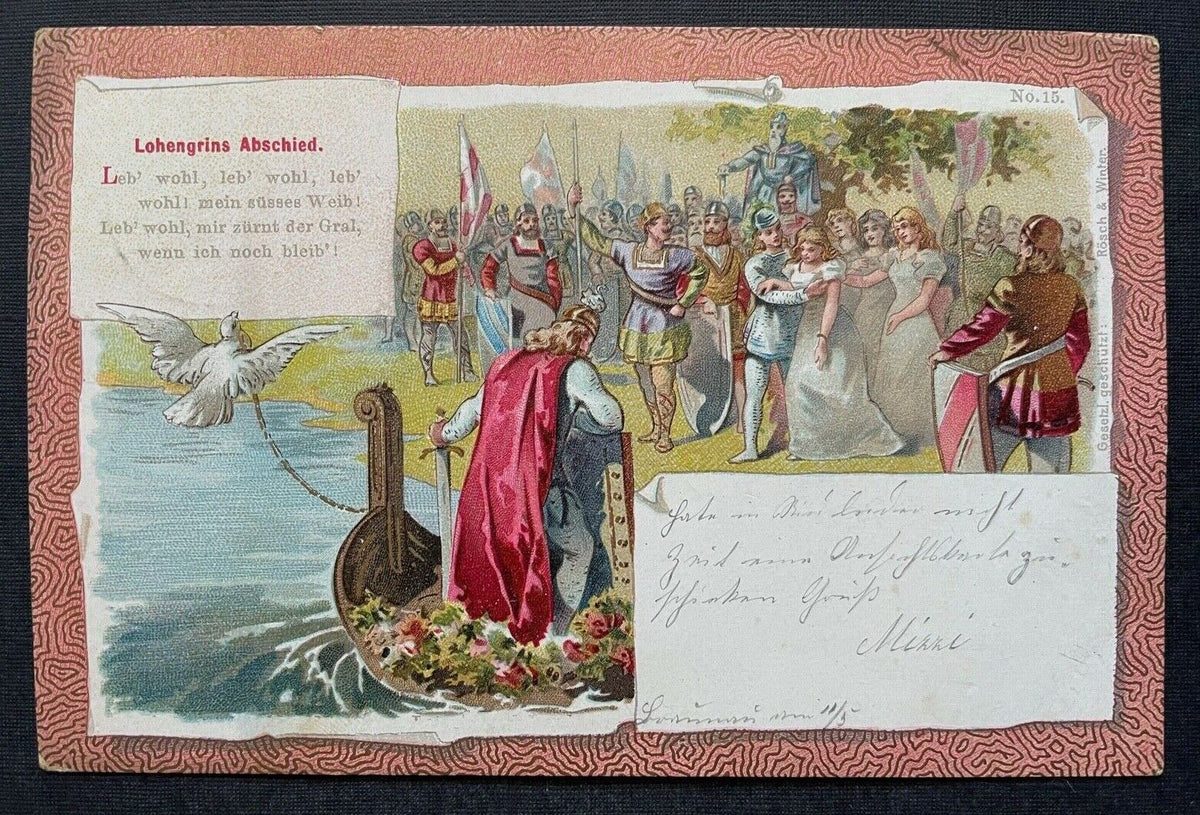 Lohengrins Abschied.
Leb' wohl, leb' wohl, leb'
wohl! mein süsses Weib!
Leb' wohl, mir zürnt der Gral,
wenn ich noch bleib'!
No. 15.
Gesetzl. geschützt! Rösch & Winter.
hate in leider nicht
Zeit eine Ansichtskarte zu-
schicken Gruß
Mizzi
Braunau am 11/5